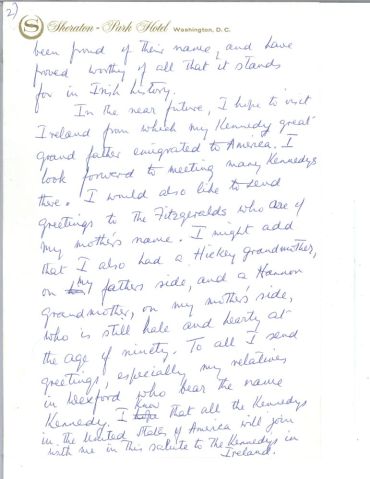 2)
S Sheraton-Park Hotel Washington, D. C.
been proud of their name, and have
proved worthy of all that it stands
for in Irish history.
In the near future, I hope to visit
Ireland from which my Kennedy great
grand father emigrated to America. I
look forward to meeting many Kennedys
there. I would also like to send
greetings to the Fitzgeralds who are of
my mother's name. I might add
that I also had a Hickey grandmother,
on my fathers side, and a Hannon
grandmother, on my mother's side,
who is still hale and hearty at
the age of ninety. To all I send
greetings, especially my relatives
in Wexford who bear the name
Kennedy. I know that all the Kennedys
in the United States of America will join
with me in this salute to the Kennedys in
Ireland.